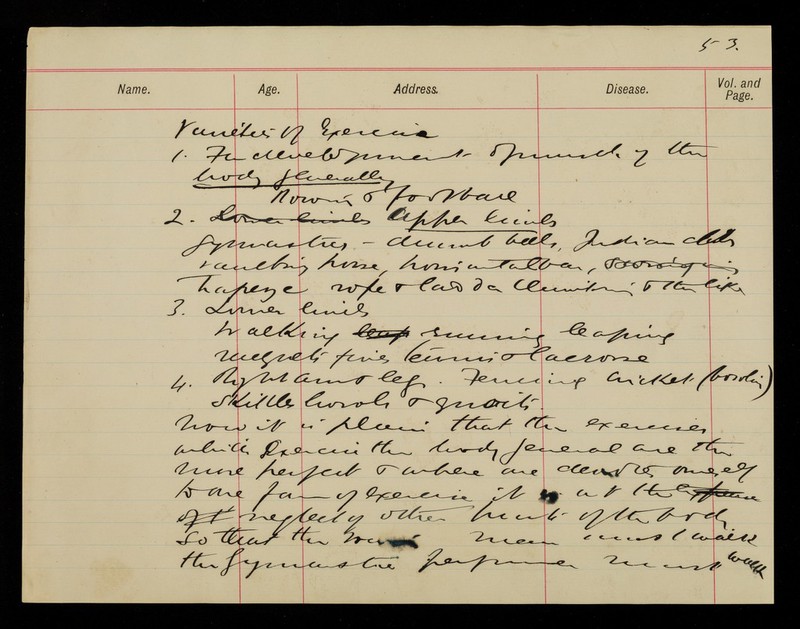 53.
Name. Age. Address. Disease. Vol. and Page.
Varieties of Exercise
1. For development of muscle of the
body generally
Rowing & football
2. Lower limbs Upper limbs
Gymnastics - dumb bells, Indian clubs
vaulting horse, horizontal bar,
trapeze rope & ladder climbing & the like
3. Lower limbs
Walking leap running leaping
fives tennis & lacrosse
4. Right arm & leg. Fencing cricket (bowling)
Skittles bowls & quoits.
Now it is plain that the exercises
which exercise the body general are the
more perfect & where one devotes oneself
to one form of exercise it is at the expense
of neglect of other parts of the body
So that the rowing man must walk
the Gymnastic performer must walk